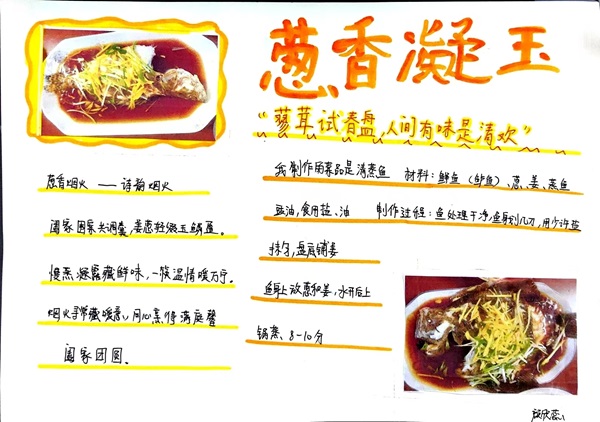 葱香凝玉
“蓼茸试春盘,人间有味是清欢”
葱香烟火——诗韵烟火
阖家围案共调羹,姜葱轻缀玉鳞
慢蒸凝露藏鲜味,一筷温情暖万宁。
烟火寻常藏暖意,同心烹得满庭馨
阖家团圆、
我制作的菜品是清蒸鱼 材料:鲜鱼(鲈鱼)、葱、姜、蒸鱼
豉油,食用盐、油 制作过程:鱼处理干净,鱼身划几刀,用少许盐
抹匀,盘底铺姜
鱼身上放葱和姜,水开后上
锅蒸、8-10分